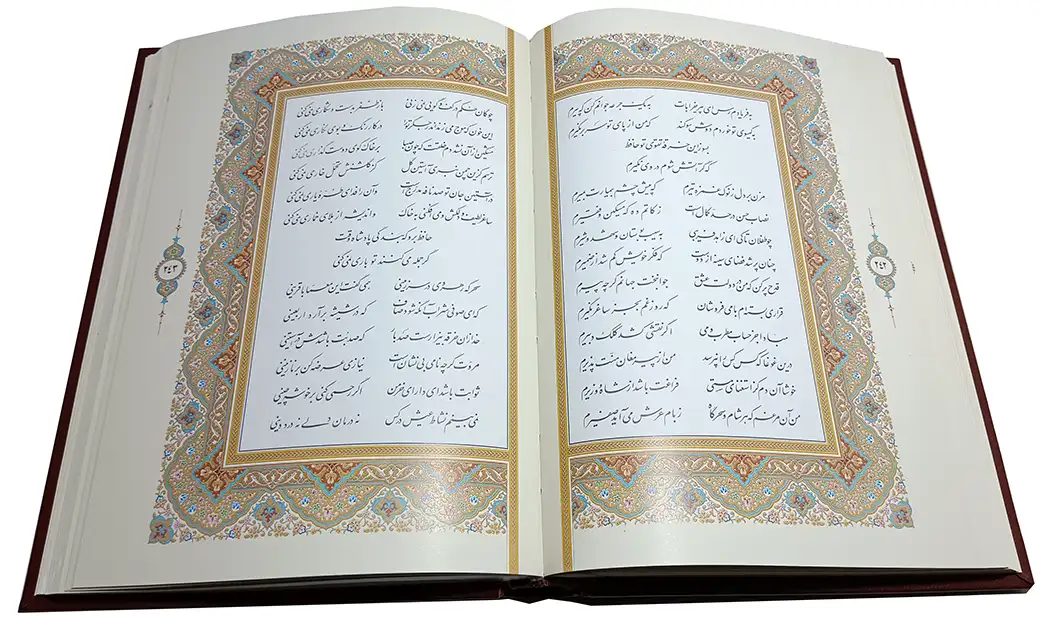 ۲۴۲
به فریادم رس ای پیر خرابات به یک جرعه جوانم کن که پیرم
به گیسوی تو خوردم دوش سوگند که من از پای تو سر بر نگیرم
بسوز این خرقه تقوی تو حافظ
که گر آتش شوم در وی نگیرم
مزن بر دل ز نوک غمزه تیرم که پیش چشم بیمارت بمیرم
نصاب حسن در حد کمال است زکاتم ده که مسکین و فقیرم
چو طفلان تا کی ای زاهد فریبی به سیب بوستان و شهد و شیرم
چنان پر شد فضای سینه از دوست که فکر خویش گم شد از ضمیرم
قدح پر کن که من در دولت عشق جوانبخت جهانم گرچه پیرم
قراری بسته‌ام با می فروشان که روز غم بجز ساغر نگیرم
مبادا جز حساب مطرب و می اگر نقشی کشد کلک دبیرم
درین غوغا که کس کس را نپرسد من از پیر مغان منت پذیرم
خوشا آن دم کز استغنای مستی فراغت باشد از شاه و وزیرم
من آن مرغم که هر شام و سحرگاه ز بام عرش می آید صفیرم
۲۴۳
چوگان حکم در کف و گویی نمی زنی باز ظفر به دست و شکاری نمی کنی
این خون که موج می زند اندر جگر ترا در کار رنگ و بوی نگاری نمی کنی
مشکین از آن نشد دم خلقت که چون صبا بر خاک کوی دوست گذاری نمی کنی
ترسم کزین چمن نبری آستین گل کز گلشنش تحمل خاری نمی کنی
در آستین جان تو صد نافه مدرج است وآن را فدای طره یاری نمی کنی
ساغر لطیف و دلکش و می افکنی به خاک و اندیشه از بلای خماری نمی کنی
حافظ برو که بندگی پادشاه وقت
گر جمله می کنند تو باری نمی کنی
سحرگه رهروی در سرزمینی همی گفت این معما با قرینی
که ای صوفی شراب آنگه شود صاف که در شیشه برآرد اربعینی
خدا زان خرقه بیزار است صد بار که صد بت باشدش در آستینی
مروت گرچه نامی بی نشان است نیازی عرضه کن بر نازنینی
ثوابت باشد ای دارای خرمن اگر رحمی کنی بر خوشه چینی
نمی بینم نشاط عیش در کس نه درمان دلی نه درد دینی